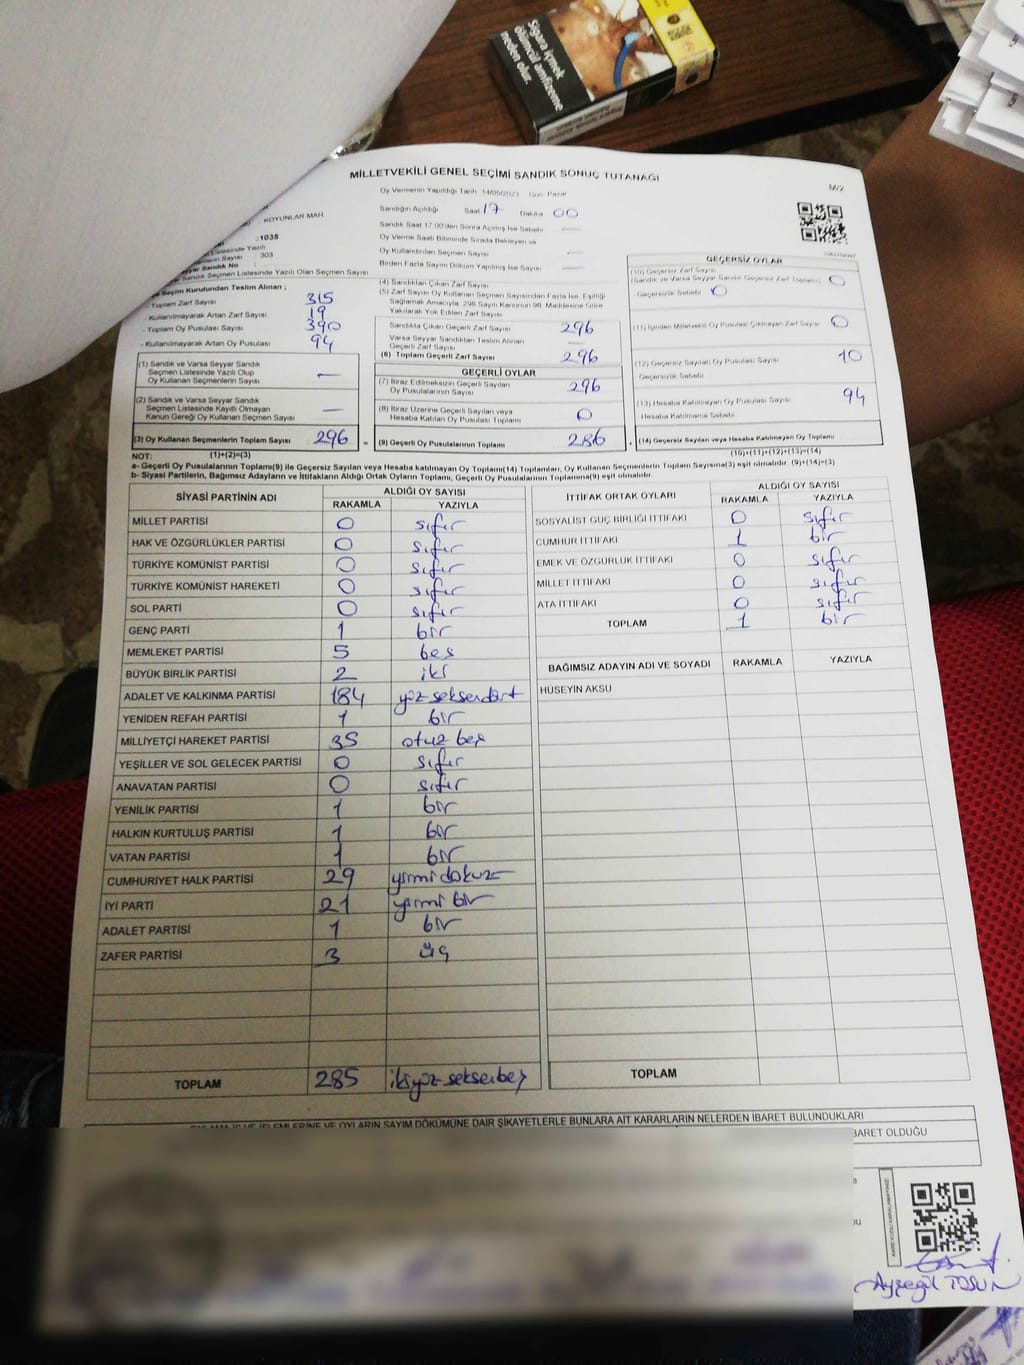 Sigara içmek
ölümcül amfizeme
neden olur.
MİLLETVEKİLİ GENEL SEÇİMİ SANDIK SONUÇ TUTANAĞI
M/2
Oy Vermenin Yapıldığı Tarih :14/05/2023 Gün: Pazar
Sandığın Açıldığı Saat 17 Dakika 00
Sandık Saat 17.00'den Sonra Açılmış İse Sebebi —
Oy Verme Saati Bitiminde Sırada Bekleyen ve
Oy Kullandırılan Seçmen Sayısı —
Birden Fazla Sayım Döküm Yapılmış İse Sayısı —
KOYUNLAR MAH
:1035
Listesinde Yazılı
Seçmen Sayısı : 303
Seyyar Sandık No :
Sandık Seçmen Listesinde Yazılı Olan Seçmen Sayısı
Seçim Kurulundan Teslim Alınan ;
- Toplam Zarf Sayısı 315
- Kullanılmayarak Artan Zarf Sayısı 19
- Toplam Oy Pusulası Sayısı 390
- Kullanılmayarak Artan Oy Pusulası 94
(1) Sandık ve Varsa Seyyar Sandık
Seçmen Listesinde Yazılı Olup
Oy Kullanan Seçmenlerin Sayısı —
(2) Sandık ve Varsa Seyyar Sandık
Seçmen Listesinde Kayıtlı Olmayan
Kanun Gereği Oy Kullanan Seçmen Sayısı —
(3) Oy Kullanan Seçmenlerin Toplam Sayısı 296 =
(4) Sandıktan Çıkan Zarf Sayısı
(5) Zarf Sayısı Oy Kullanan Seçmen Sayısından Fazla İse, Eşitliği
Sağlamak Amacıyla, 298 Sayılı Kanunun 98. Maddesine Göre
Yakılarak Yok Edilen Zarf Sayısı
Sandıkta Çıkan Geçerli Zarf Sayısı 296
Varsa Seyyar Sandıktan Teslim Alınan
Geçerli Zarf Sayısı —
(6) Toplam Geçerli Zarf Sayısı 296
GEÇERLİ OYLAR
(7) İtiraz Edilmeksizin Geçerli Sayılan
Oy Pusulalarının Sayısı 296
(8) İtiraz Üzerine Geçerli Sayılan veya
Hesaba Katılan Oy Pusulası Toplamı 0
(9) Geçerli Oy Pusulalarının Toplamı 286 +
GEÇERSİZ OYLAR
(10) Geçersiz Zarf Sayısı
(Sandık ve Varsa Seyyar Sandık Geçersiz Zarf Toplamı) 0
Geçersizlik Sebebi 0
(11) İçinden Milletvekili Oy Pusulası Çıkmayan Zarf Sayısı 0
(12) Geçersiz Sayılan Oy Pusulası Sayısı 10
Geçersizlik Sebebi
(13) Hesaba Katılmayan Oy Pusulası Sayısı 94
Hesaba Katılmama Sebebi
(14) Geçersiz Sayılan veya Hesaba Katılmayan Oy Toplamı
NOT: (1)+(2)=(3) (10)+(11)+(12)+(13)=(14)
a- Geçerli Oy Pusulalarının Toplamı(9) ile Geçersiz Sayılan veya Hesaba katılmayan Oy Toplamı(14) Toplamları, Oy Kullanan Seçmenlerin Toplam Sayısına(3) eşit olmalıdır. (9)+(14)=(3)
b- Siyasi Partilerin, Bağımsız Adayların ve İttifakların Aldığı Ortak Oyların Toplamı, Geçerli Oy Pusulalarının Toplamına(9) eşit olmalıdır.
SİYASİ PARTİNİN ADI ALDIĞI OY SAYISI
RAKAMLA YAZIYLA
MİLLET PARTİSİ 0 sıfır
HAK VE ÖZGÜRLÜKLER PARTİSİ 0 sıfır
TÜRKİYE KOMÜNİST PARTİSİ 0 sıfır
TÜRKİYE KOMÜNİST HAREKETİ 0 sıfır
SOL PARTİ 0 sıfır
GENÇ PARTİ 1 bir
MEMLEKET PARTİSİ 5 beş
BÜYÜK BİRLİK PARTİSİ 2 iki
ADALET VE KALKINMA PARTİSİ 184 yüz seksendört
YENİDEN REFAH PARTİSİ 1 bir
MİLLİYETÇİ HAREKET PARTİSİ 35 otuz beş
YEŞİLLER VE SOL GELECEK PARTİSİ 0 sıfır
ANAVATAN PARTİSİ 0 sıfır
YENİLİK PARTİSİ 1 bir
HALKIN KURTULUŞ PARTİSİ 1 bir
VATAN PARTİSİ 1 bir
CUMHURİYET HALK PARTİSİ 29 yirmi dokuz
İYİ PARTİ 21 yirmi bir
ADALET PARTİSİ 1 bir
ZAFER PARTİSİ 3 üç
TOPLAM 285 ikiyüz seksenbeş
İTTİFAK ORTAK OYLARI ALDIĞI OY SAYISI
RAKAMLA YAZIYLA
SOSYALİST GÜÇ BİRLİĞİ İTTİFAKI 0 sıfır
CUMHUR İTTİFAKI 1 bir
EMEK VE ÖZGÜRLÜK İTTİFAKI 0 sıfır
MİLLET İTTİFAKI 0 sıfır
ATA İTTİFAKI 0 sıfır
TOPLAM 1 bir
BAĞIMSIZ ADAYIN ADI VE SOYADI RAKAMLA YAZIYLA
HÜSEYİN AKSU
TOPLAM
İŞLEMLERİNE VE OYLARIN SAYIM DÖKÜMÜNE DAİR ŞİKAYETLERLE BUNLARA AİT KARARLARIN NELERDEN İBARET BULUNDUKLARI
İBARET OLDUĞU
Ayşegül TOSUN